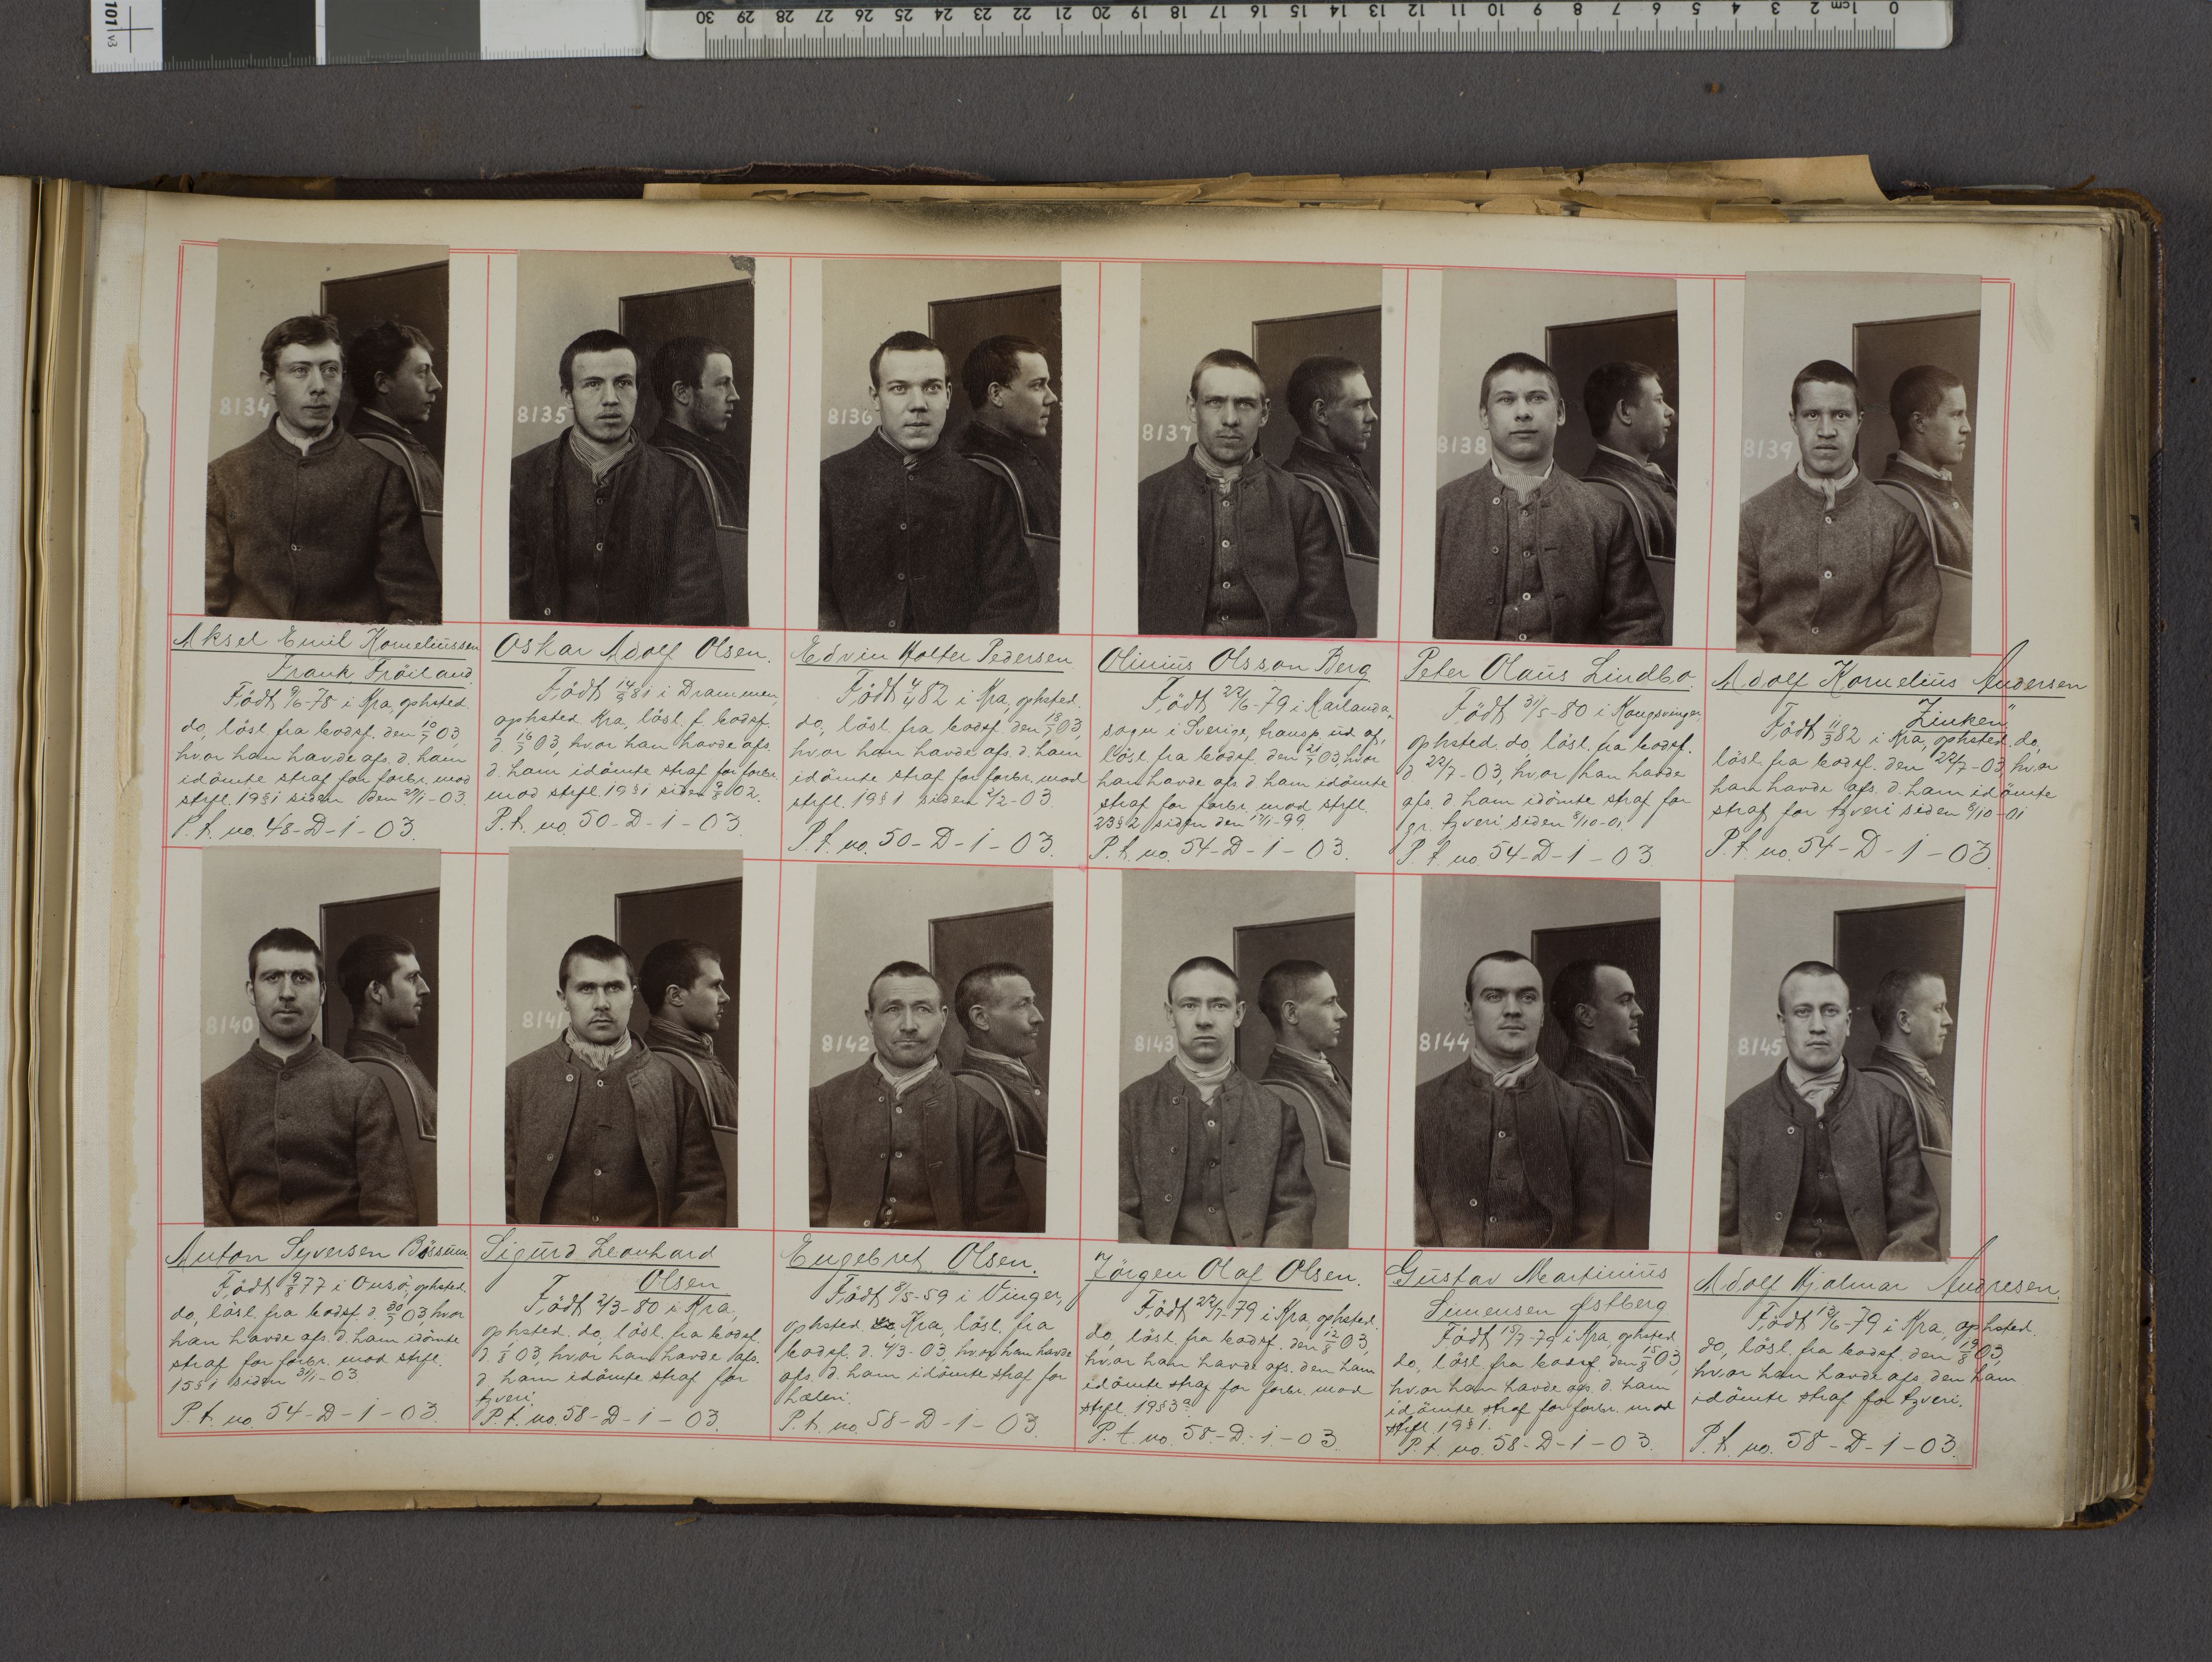 101 v3
30 29 28 27 26 25 24 23 22 21 20 19 18 17 16 15 14 13 12 11 10 9 8 7 6 5 4 3 2 1cm 0
8134
Aksel Emil Korneliussen
Frank Fröiland
Födt 9/6-78 i Kra, ophsted.
do, lösl. fra bodsf. den 10/7 03,
hvor han havde afs. d. ham
idömte straf for forbr. mod
strfl. 19§1 siden den 27/1-03.
P. t. no. 48-D-1-03.
8135
Oskar Adolf Olsen.
Födt 14/9 81 i Drammen,
ophsted Kra, lösl. f. bodsf.
d. 16/7 03, hvor han havde afs.
d. ham idömte straf for forbr.
mod strfl. 19§1 siden 9/8 02.
P. t. no. 50-D-1-03.
8136
Edvin Holter Pedersen
Födt 4/4 82 i Kra, ophsted.
do, lösl. fra bodsf. den 18/7 03,
hvor han havde afs. d. ham
idömte straf for forbr. mod
strfl. 19§1 siden 2/2-03.
P. t. no. 50-D-1-03.
8137
Olinius Olsson Berg
Födt 22/6-79 i Kärlanda
sogn i Sverige, transp. ud af,
lösl. fra bodsf. den 21/7 03, hvor
han havde afs. d. ham idömte
straf for forbr. mod strfl.
23§2 siden den 17/1-99.
P. t. no. 54-D-1-03.
8138
Peter Olaus Lindbo.
Födt 31/5-80 i Kongsvinger,
ophsted. do, lösl. fra bodsf.
d. 22/7-03, hvor han havde
afs. d. ham idömte straf for
gr. tyveri siden 8/10-01.
P. t. no. 54-D-1-03
8139
Adolf Kornelius Andersen
"Zinken"
Födt 11/3 82 i Kra, ophsted. do,
lösl. fra bodsf. den 22/7-03, hvor
han havde afs. d. ham idömte
straf for tyveri siden 8/10-01
P. t. no. 54-D-1-03
8140
Anton Syversen Bössum
Födt 9/8 77 i Onsö, ophsted.
do, lösl. fra bodsf. d. 30/7 03, hvor
han havde afs. d. ham idömte
straf for forbr. mod strfl.
15§1 siden 31/1-03
P. t. no. 54-D-1-03.
8141
Sigurd Leonhard
Olsen
Födt 2/3-80 i Kra,
ophsted. do, lösl. fra bodsf.
d. 1/8 03, hvor han havde afs.
d. ham idömte straf for
tyveri.
P. t. no. 58-D-1-03.
8142
Engebret Olsen.
Födt 8/5-59 i Vinger,
ophsted Kra, lösl. fra
bodsf. d. 4/3-03 hvor han havde
afs. d. ham idömte straf for
hæleri.
P. t. no. 58-D-1-03.
8143
Jörgen Olaf Olsen.
Födt 27/7-79 i Kra, ophsted.
do, lösl. fra bodsf. den 12/8 03,
hvor han havde afs. den ham
idömte straf for forbr. mod
strfl. 19§3a
P. t. no. 58-D-1-03.
8144
Gustav Martinius
Simensen Østberg
Födt 15/7-79 i Kra, ophsted
do, lösl. fra bodsf. den 15/8 03,
hvor han havde afs. d. ham
idömte straf for forbr. mod
strfl. 19§1.
P. t. no. 58-D-1-03.
8145
Adolf Hjalmar Andresen.
Födt 13/6-79 i Kra, ophsted.
do, lösl. fra bodsf. den 19/8 03,
hvor han havde afs. den ham
idömte straf for tyveri.
P. t. no. 58-D-1-03.